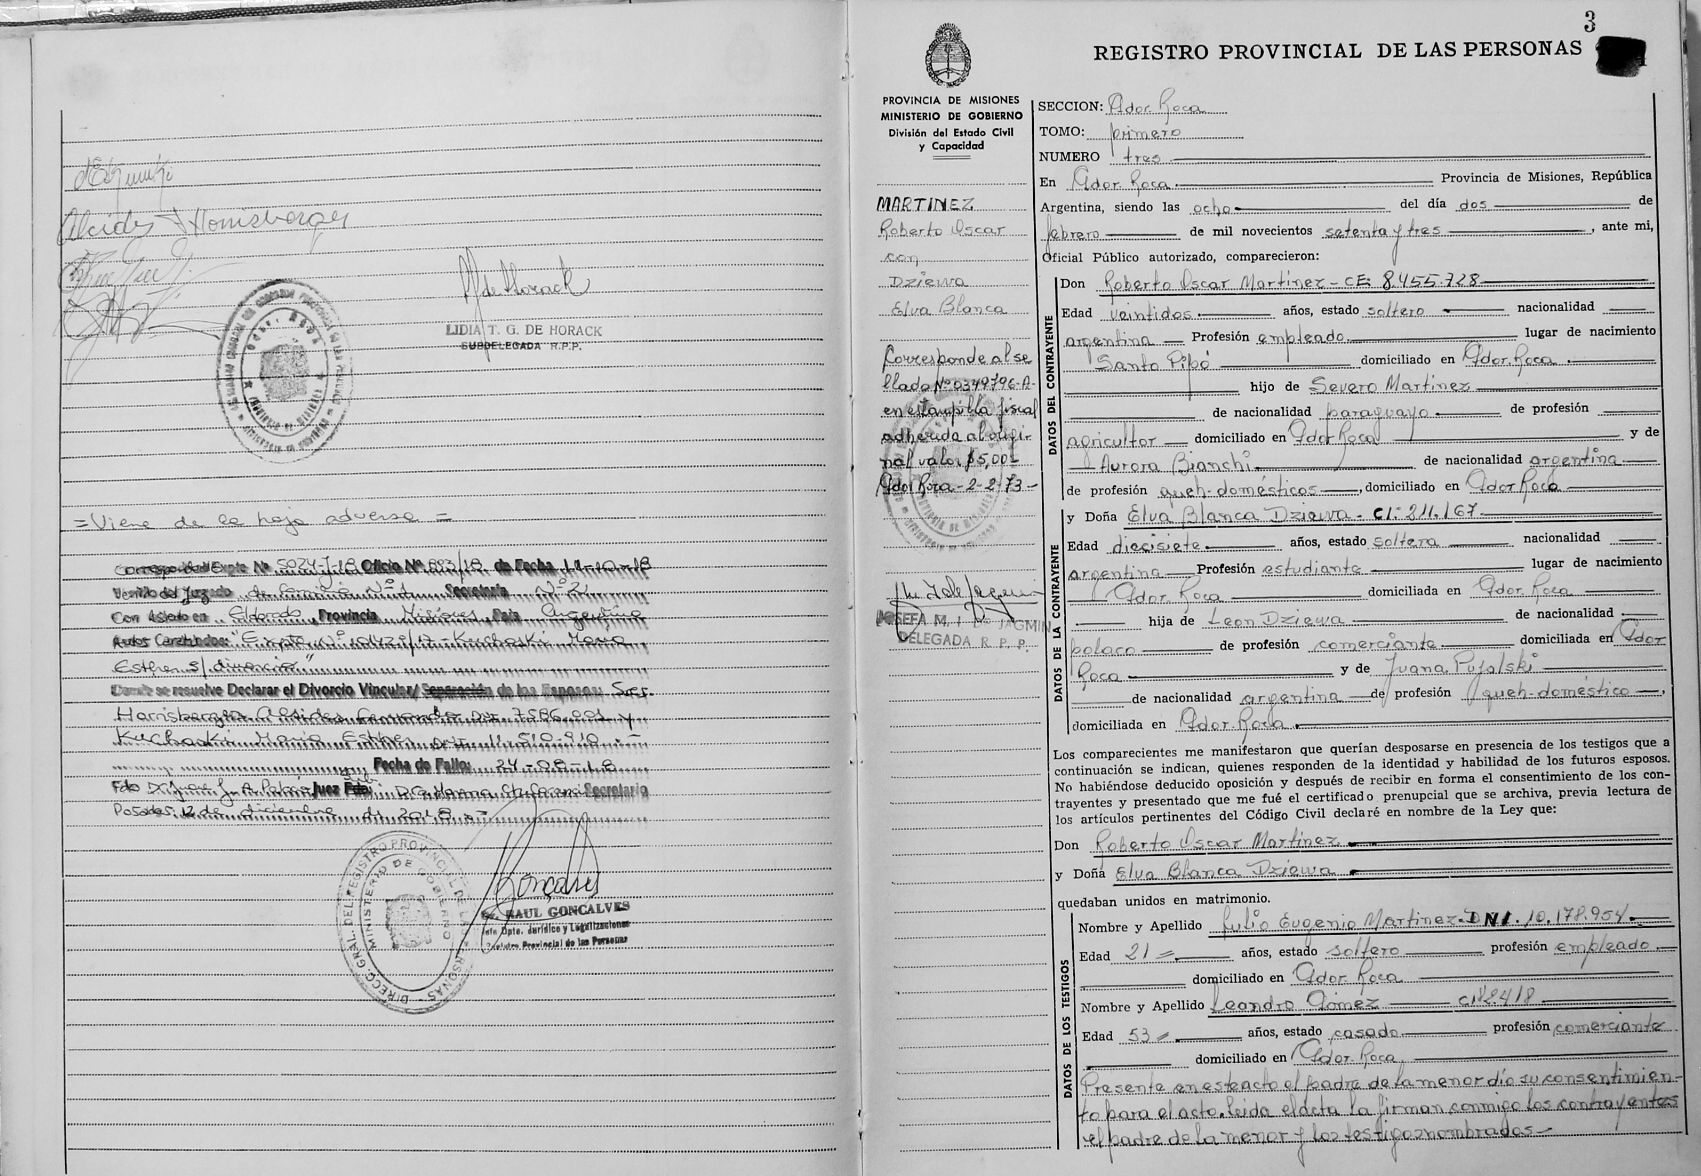 Alcides Honisberger
LIDIA T. G. DE HORACK
SUBDELEGADA R.P.P.
= Viene de la hoja adversa =
Corresponde al Expte Nº 5024-J-18 Oficio Nº 893/18 de Fecha 11-10-18
Venido del Juzgado de Familia Nº 1 Secretaría Nº 2
Con Asiento en Eldorado, Provincia Misiones, País Argentina
Autos Caratulados: "Expte Nº Kuchaski Maria
Esther s/ divorcio"
Donde se resuelve Declarar el Divorcio Vincular/ Separación de los Esposos: Sres.
Harrisberger Alcides Fernando DNI 7.586.001 y
Kuchaski Maria Esther DNI 11.510.910 .-
Fecha de Fallo: 24-08-18
Fdo Dr. Juez Fdo: Secretario
Posadas, 12 de diciembre de 2018 .-
DIRECC. GRAL. DEL REGISTRO PROVINCIAL DE LAS PERSONAS
MINISTERIO DE GOBIERNO
Goncalves
RAUL GONCALVES
Dpto. Jurídico y Legalizaciones
Registro Provincial de las Personas
3
REGISTRO PROVINCIAL DE LAS PERSONAS
PROVINCIA DE MISIONES
MINISTERIO DE GOBIERNO
División del Estado Civil
y Capacidad
MARTINEZ
Roberto Oscar
con
Dziewa
Elva Blanca
Corresponde al se
llado Nº 0349796-A-
en estampilla fiscal
adherida al origi-
nal valor $5,00-
Gdor. Roca-2-2-73-
JOSEFA M. I. DE JAGMIN
DELEGADA R. P. P.
SECCION: Gdor. Roca
TOMO: primero
NUMERO tres
En Gdor. Roca Provincia de Misiones, República
Argentina, siendo las ocho del día dos de
febrero de mil novecientos setenta y tres, ante mi,
Oficial Público autorizado, comparecieron:
DATOS DEL CONTRAYENTE
Don Roberto Oscar Martínez - CE: 8.455.728
Edad veintidos años, estado soltero nacionalidad
argentina Profesión empleado lugar de nacimiento
Santo Pipó domiciliado en Gdor. Roca
hijo de Severo Martínez
de nacionalidad paraguayo de profesión
agricultor domiciliado en Gdor Roca y de
Aurora Bianchi de nacionalidad argentina
de profesión queh-domésticos, domiciliado en Gdor Roca
DATOS DE LA CONTRAYENTE
y Doña Elva Blanca Dziewa - CI: 211.167
Edad diecisiete años, estado soltera nacionalidad
argentina Profesión estudiante lugar de nacimiento
Gdor. Roca domiciliada en Gdor. Roca
hija de Leon Dziewa de nacionalidad
polaca de profesión comerciante domiciliada en Gdor
Roca y de Juana Pujalski
de nacionalidad argentina de profesión queh-doméstico,
domiciliada en Gdor. Roca
Los comparecientes me manifestaron que querían desposarse en presencia de los testigos que a
continuación se indican, quienes responden de la identidad y habilidad de los futuros esposos.
No habiéndose deducido oposición y después de recibir en forma el consentimiento de los con-
trayentes y presentado que me fué el certificado prenupcial que se archiva, previa lectura de
los artículos pertinentes del Código Civil declaré en nombre de la Ley que:
Don Roberto Oscar Martínez
y Doña Elva Blanca Dziewa
quedaban unidos en matrimonio.
DATOS DE LOS TESTIGOS
Nombre y Apellido Julio Eugenio Martínez-DNI. 10.178.954
Edad 21= años, estado soltero profesión empleado
domiciliado en Gdor. Roca
Nombre y Apellido Leandro Gómez
Edad 53= años, estado casado profesión comerciante
domiciliado en Gdor. Roca
Presente en este acto el padre de la menor dío su consentimien-
to para el acto. Leida el acta la firman conmigo los contrayentes
el padre de la menor y los testigos nombrados-